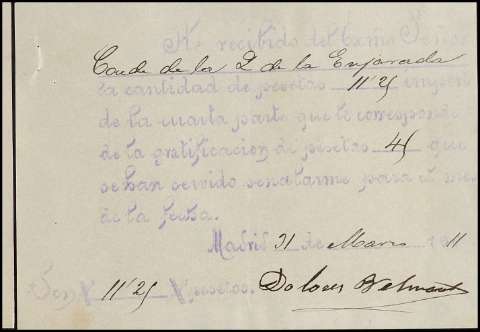 He recibido del Exmo Señor
Conde de la P. de la Enjarada
la cantidad de pesetas 11'25 import
de la cuarta parte que le corresponde
de la gratificacion de pesetas 45 que
se han servido señalarme para el mes
de la fecha.
Madrid 31 de Marzo 1911
Son 11'25 pesetas. Dolores Belmonte